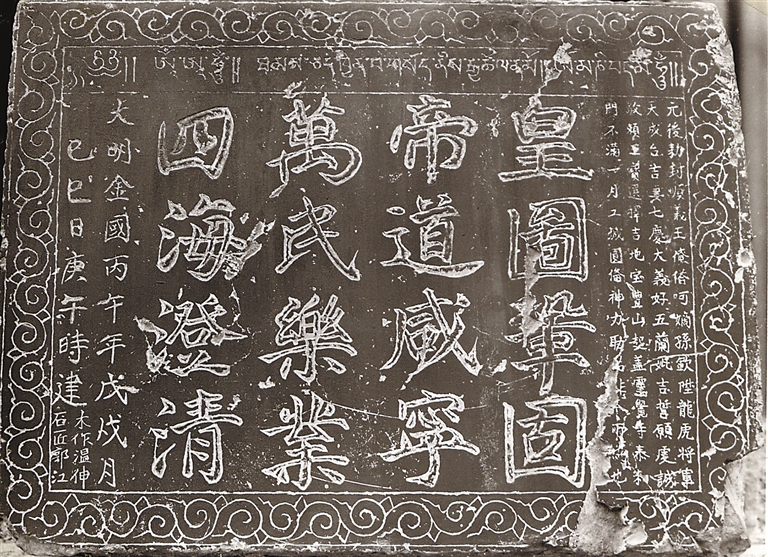 元後勅封順義王俺答呵嫡孫欽陞龍虎將軍
天成台吉妻七慶大義好五蘭妣吉誓願虔誠
敬賴三寶選擇吉地宝豐山起蓋靈覺寺泰和
門不滿一月工城圓備神力助佑非人所為也
皇圖鞏固
帝道咸寧
萬民樂業
四海澄清
大明金國丙午年戊戌月
己巳日庚午時建
木作溫伸
石匠郭江